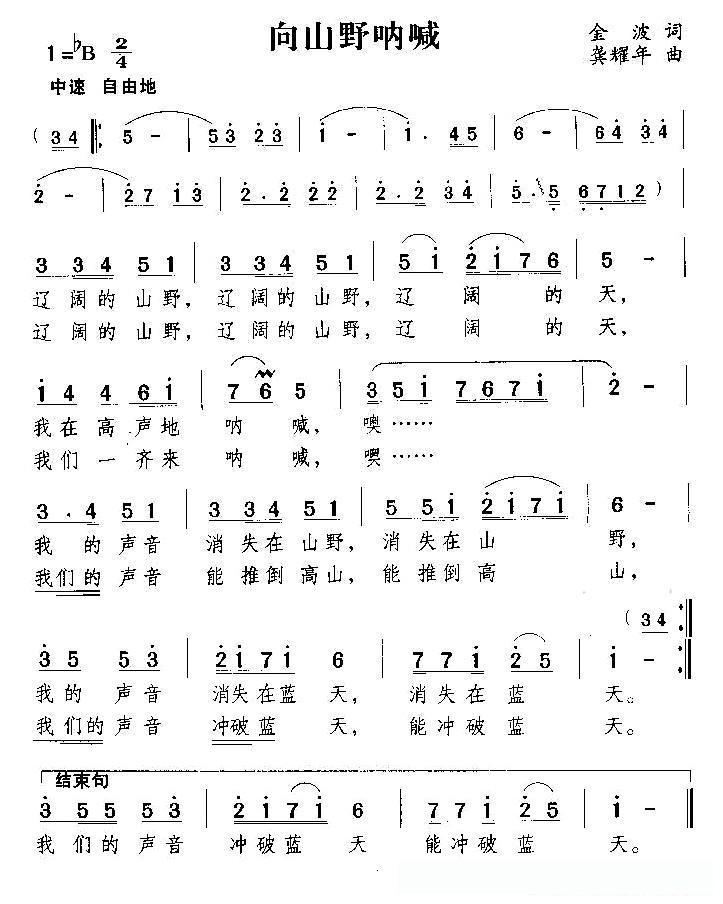 向山野呐喊
1=♭B 2/4
金波 词
龚耀年 曲
中速 自由地
( 3 4 ‖: 5 - | 5 3̇ 2̇ 3̇ | 1̇ - | 1̇ . 4 5 | 6 - | 6 4 3̇ 4 |
2̇ - | 2̇ 7 1̇ 3̇ | 2̇ . 2̇ 2̇ 2̇ | 2̇ . 2̇ 3̇ 4̇ | 5 . 5 6 7 1 2 )
3 3 4 5 1 | 3 3 4 5 1 | 5 1̇ 2̇ 1̇ 7 6 | 5 - |
辽 阔的 山野, 辽阔的 山野, 辽 阔 的 天,
辽 阔的 山野, 辽阔的 山野, 辽 阔 的 天,
1̇ 4 4 6 1̇ | 7 6 5 | 3 5 1̇ 7 6 7 1̇ | 2̇ - |
我 在 高 声地 呐 喊, 噢……
我们 一 齐来 呐 喊, 噢……
3 . 4 5 1 | 3 3 4 5 1 | 5 5 1̇ 2̇ 1̇ 7 1̇ | 6 - |
我 的 声音 消 失在 山野, 消 失在 山 野,
我们的 声音 能 推倒 高山, 能 推倒 高 山,
( 3 4 :‖
3̇ 5 5 3̇ | 2̇ 1̇ 7 1̇ 6 | 7 7 1̇ 2̇ 5 | 1̇ - :‖
我的 声音 消失在蓝 天, 消失在 蓝 天。
我们的 声音 冲破蓝 天, 能冲破 蓝 天。
结束句
3̇ 5 5 5 3̇ | 2̇ 1̇ 7 1̇ 6 | 7 7 1̇ 2̇ 5 | 1̇ - ‖
我 们的 声音 冲破蓝 天 能冲破 蓝 天。